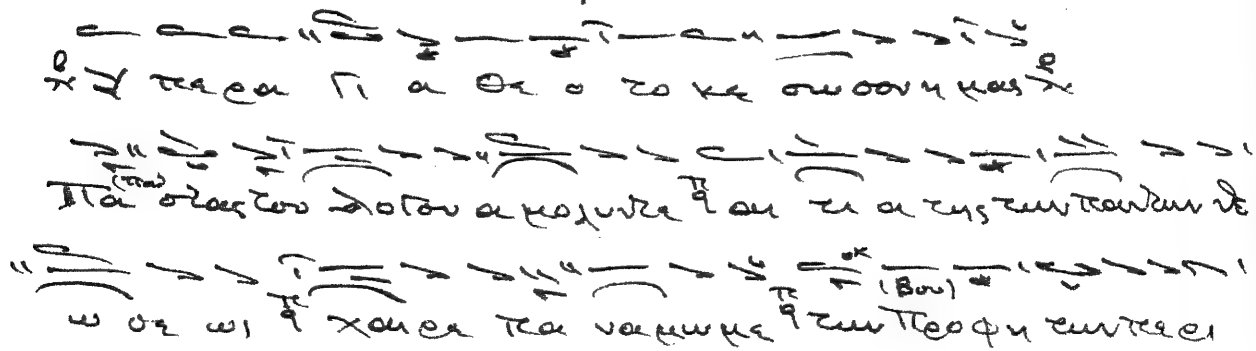 Υ πε ρα Γι α Θε ο το κε σω σον η μας
Πα (πα) στας του λο γου α μο λυν τε αι τι α της των παν των θε
ω σε ως χαι ρε πα να μω με (Βου) των Προ φη των πε ρι